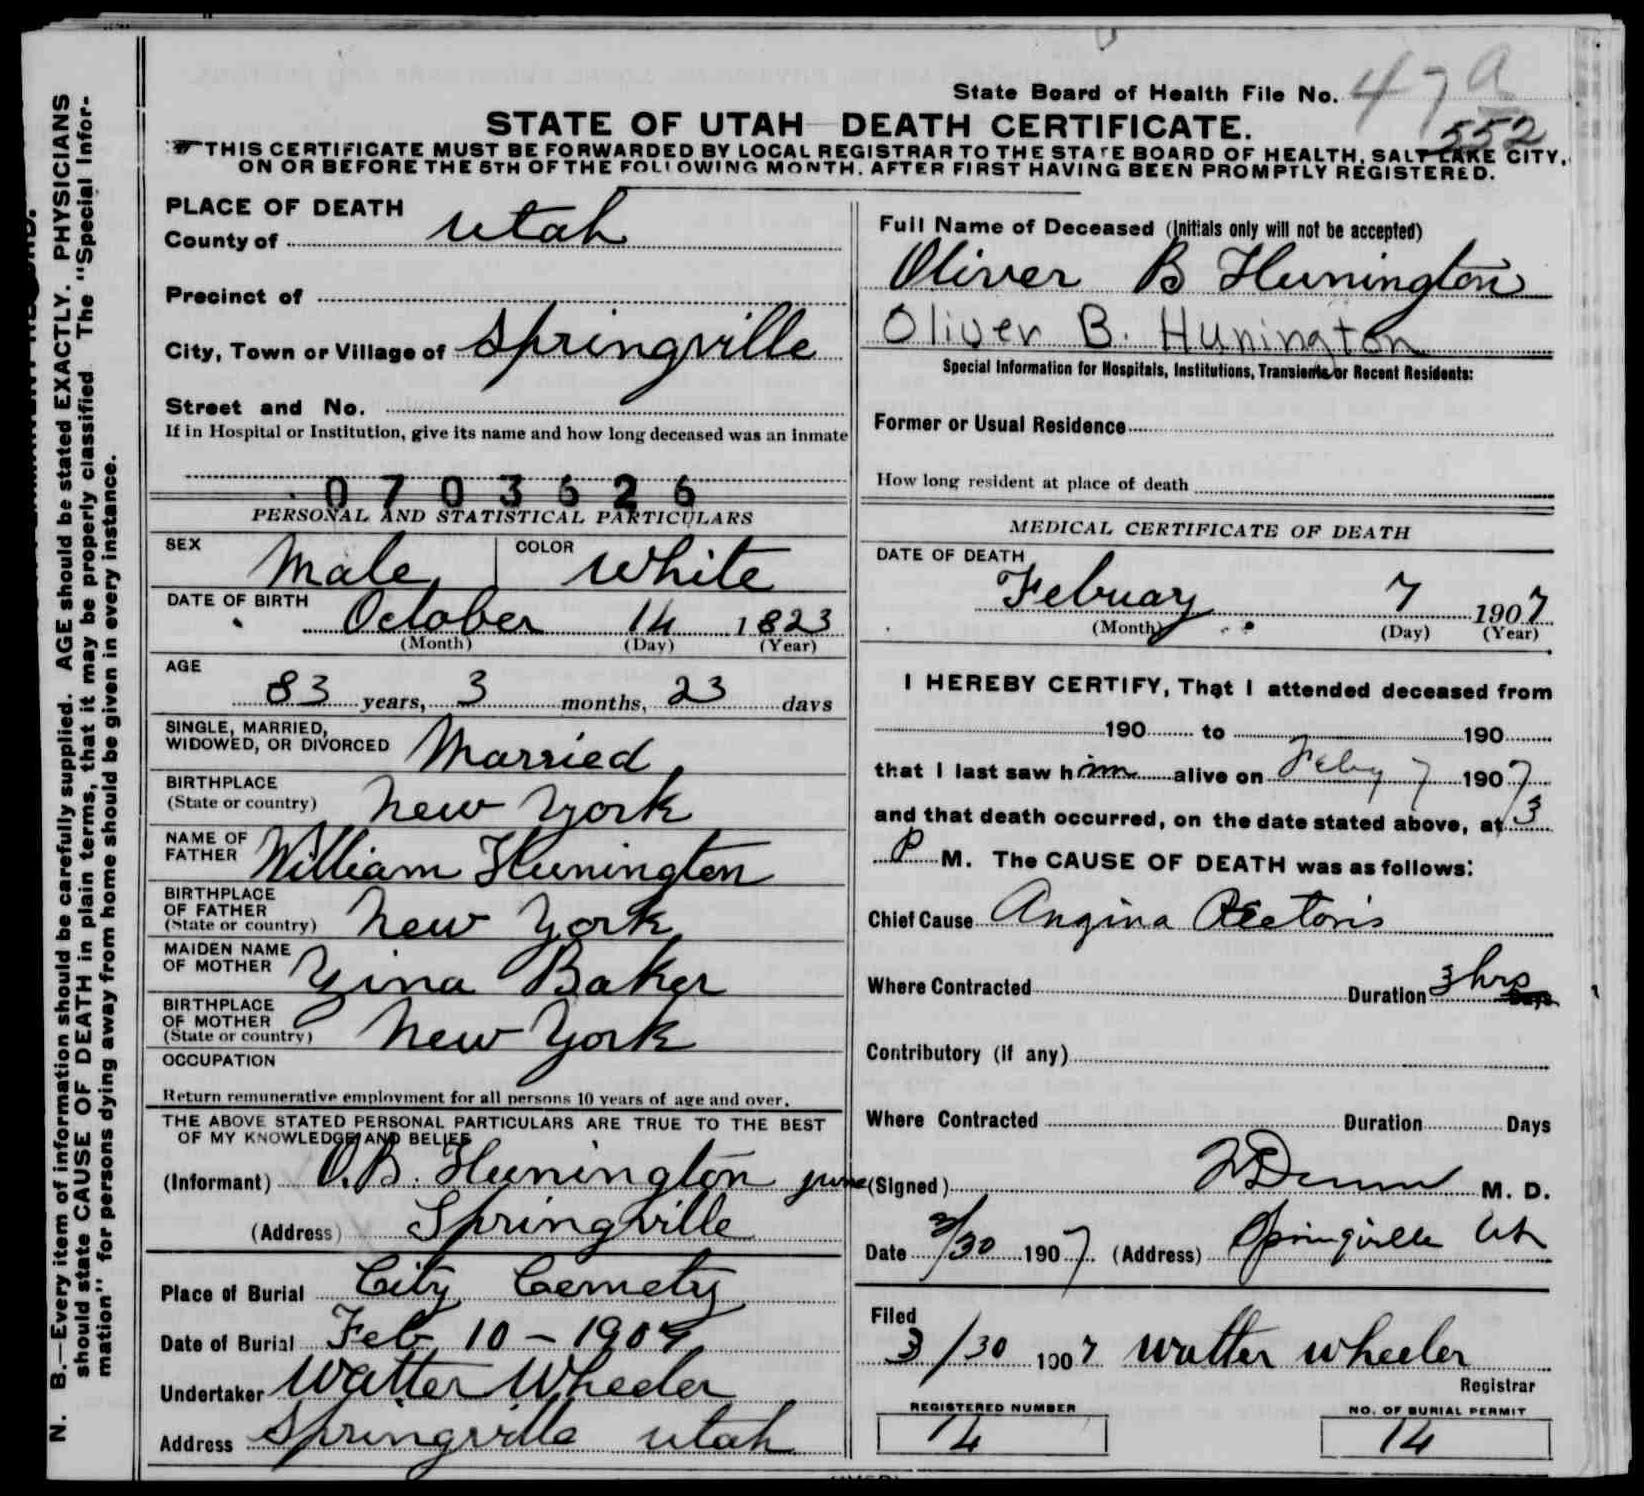 State Board of Health File No. 47a
552
STATE OF UTAH DEATH CERTIFICATE.
THIS CERTIFICATE MUST BE FORWARDED BY LOCAL REGISTRAR TO THE STATE BOARD OF HEALTH, SALT LAKE CITY,
ON OR BEFORE THE 5TH OF THE FOLLOWING MONTH, AFTER FIRST HAVING BEEN PROMPTLY REGISTERED.
N. B.—Every item of information should be carefully supplied. AGE should be stated EXACTLY. PHYSICIANS
should state CAUSE OF DEATH in plain terms, that it may be properly classified The "Special Infor-
mation" for persons dying away from home should be given in every instance.
PLACE OF DEATH
County of Utah
Precinct of
City, Town or Village of Springville
Street and No.
If in Hospital or Institution, give its name and how long deceased was an inmate
0703626
PERSONAL AND STATISTICAL PARTICULARS
SEX Male COLOR White
DATE OF BIRTH October 14 1823
(Month) (Day) (Year)
AGE
83 years, 3 months, 23 days
SINGLE, MARRIED,
WIDOWED, OR DIVORCED Married
BIRTHPLACE
(State or country) New York
NAME OF
FATHER William Hunington
BIRTHPLACE
OF FATHER
(State or country) New York
MAIDEN NAME
OF MOTHER Zina Baker
BIRTHPLACE
OF MOTHER
(State or country) New York
OCCUPATION
Return remunerative employment for all persons 10 years of age and over.
THE ABOVE STATED PERSONAL PARTICULARS ARE TRUE TO THE BEST
OF MY KNOWLEDGE AND BELIEF
(Informant) O.B. Hunington
(Address) Springville
Place of Burial City Cemety
Date of Burial Feb 10 - 1907
Undertaker Walter Wheeler
Address Springville Utah
Full Name of Deceased (Initials only will not be accepted)
Oliver B Hunington
Oliver B. Hunington
Special Information for Hospitals, Institutions, Transients or Recent Residents:
Former or Usual Residence
How long resident at place of death
MEDICAL CERTIFICATE OF DEATH
DATE OF DEATH
Februay 7 1907
(Month) (Day) (Year)
I HEREBY CERTIFY, That I attended deceased from
190 to 190
that I last saw him alive on Feby 7 1907
and that death occurred, on the date stated above, at 3
P M. The CAUSE OF DEATH was as follows:
Chief Cause Angina Pectoris
Where Contracted Duration 3 hrs Days
Contributory (if any)
Where Contracted Duration Days
(Signed) M. D.
Date 3/30 1907 (Address) Springville Ut
Filed
3/30 1907 Walter Wheeler
Registrar
REGISTERED NUMBER
14
NO. OF BURIAL PERMIT
14